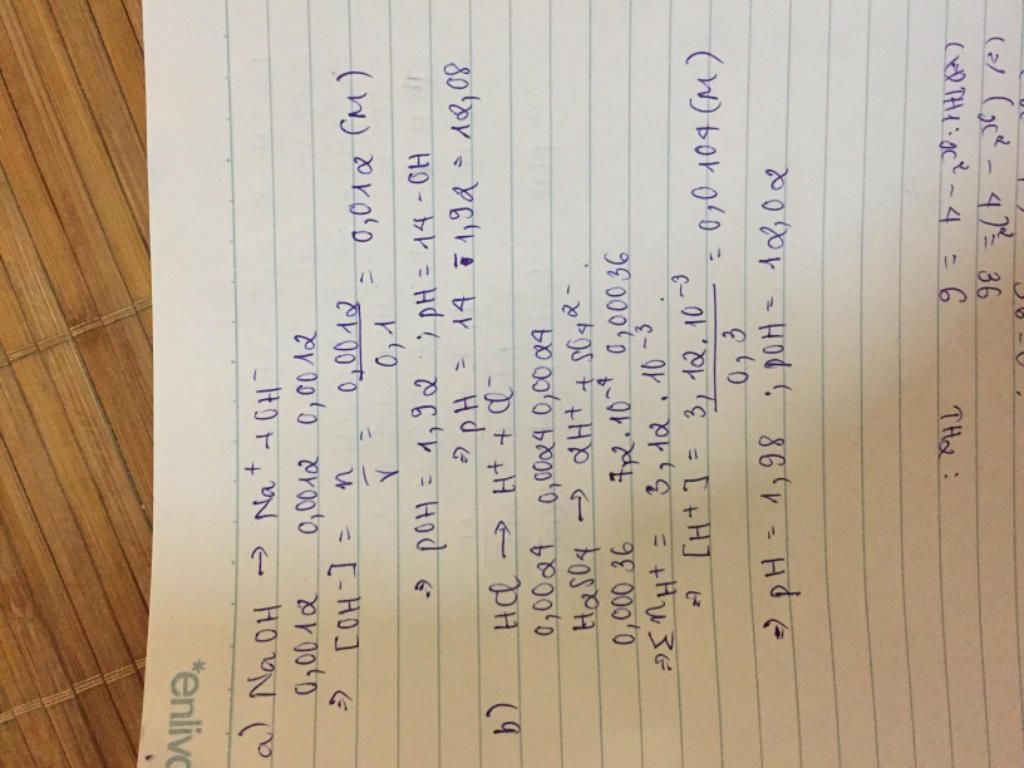 *enlivo
a) NaOH → Na⁺ + OH⁻
0,0012 0,0012 0,0012
⇒ [OH⁻] = n/V = 0,0012/0,1 = 0,012 (M)
⇒ pOH = 1,92 ; pH = 14 - OH
⇒ pH = 14 - 1,92 = 12,08
b) HCl → H⁺ + Cl⁻
0,0024 0,0024 0,0024
H₂SO₄ → 2H⁺ + SO₄²⁻
0,00036 7,2.10⁻⁴ 0,00036
⇒ Σn H⁺ = 3,12.10⁻³
⇒ [H⁺] = 3,12.10⁻³/0,3 = 0,0104 (M)
⇒ pH = 1,98 ; pOH = 12,02
(=) (x² - 4)² = 36
(=) TH1: x² - 4 = 6 TH2: